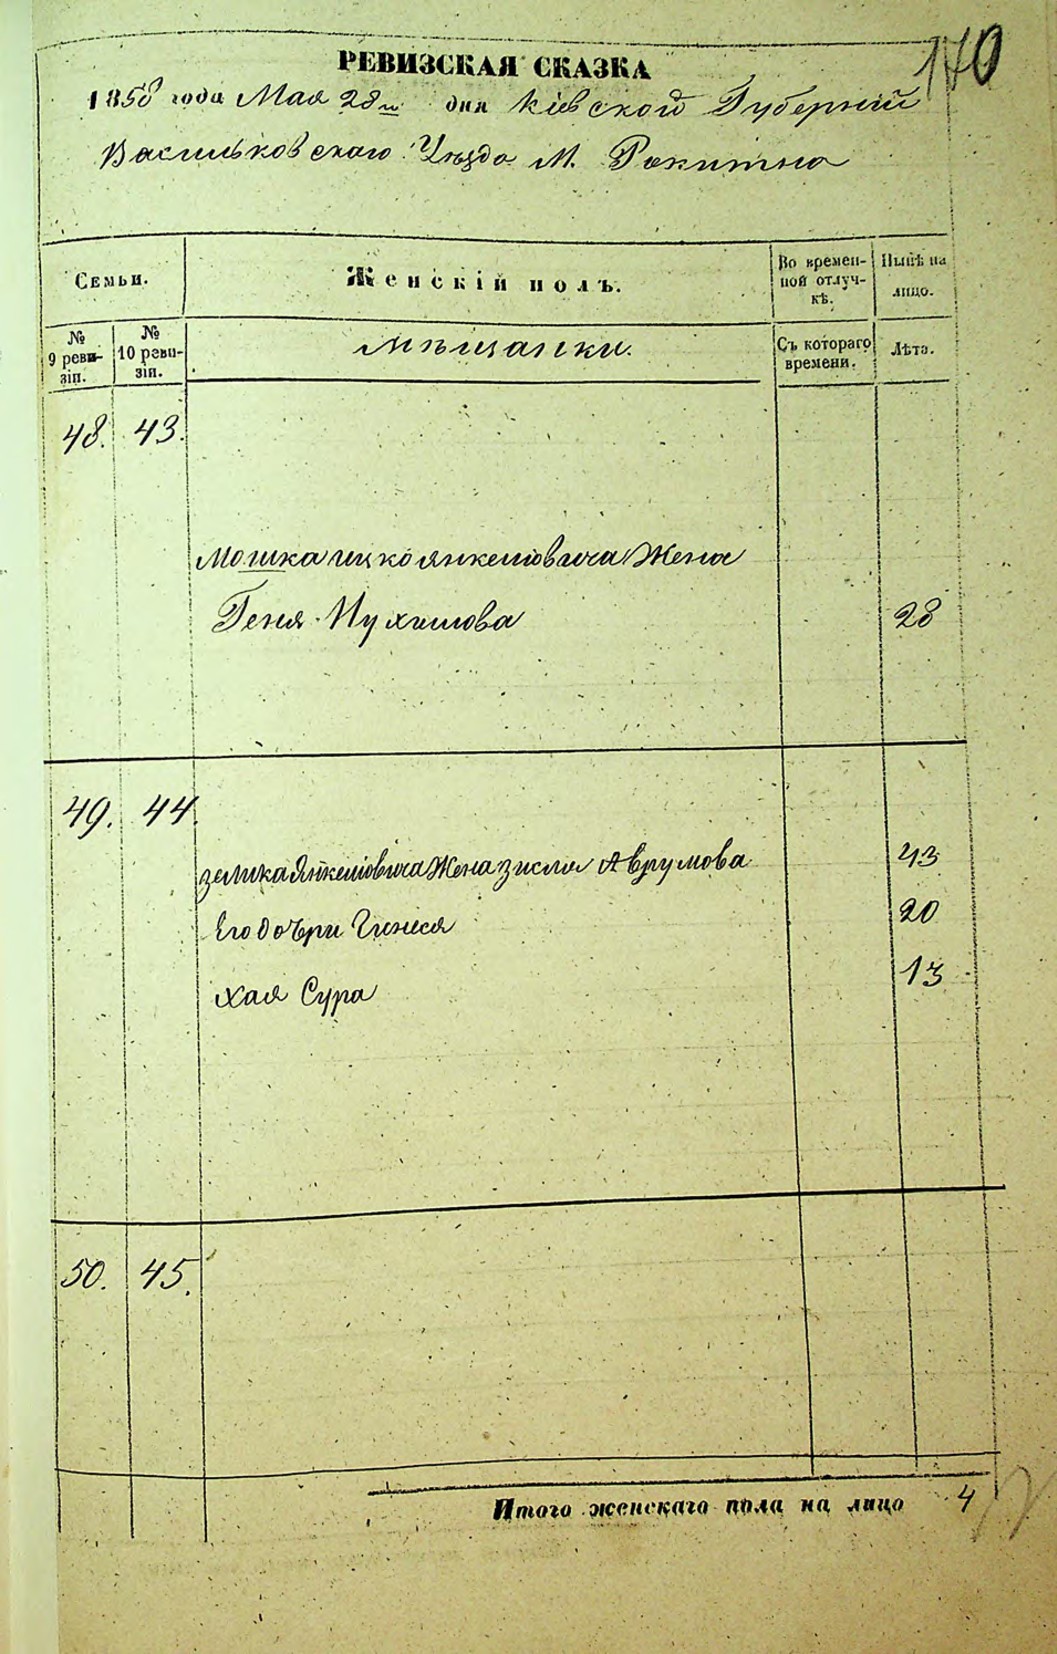 140
РЕВИЗСКАЯ СКАЗКА
1858 года Мая 28го дня Кіевской Губерніи
Васильковскаго Уѣзда М. Ракитна
Семьи.
Женскій полъ.
Во времен-
ной отлуч-
кѣ.
Нынѣ на
лицо.
№
9 реви-
зіи.
№
10 реви-
зіи.
мѣщанки.
Съ котораго
времени.
Лѣта.
48. 43.
Мошка ицко янкелiовича Жена
Геня Нухимова 28
49. 44.
зелика Янкелiовича Жена зисля Аврумова 43
Его дочри Гинеся 20
хая Сура 13
50. 45.
Итого женскаго пола на лицо 4